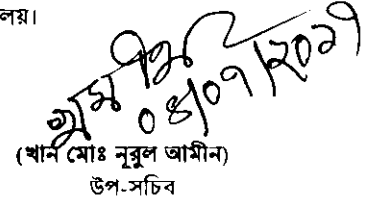 লয়।
০৪/০৭/২০২১
(খান মোঃ নূরুল আমীন)
উপ-সচিব